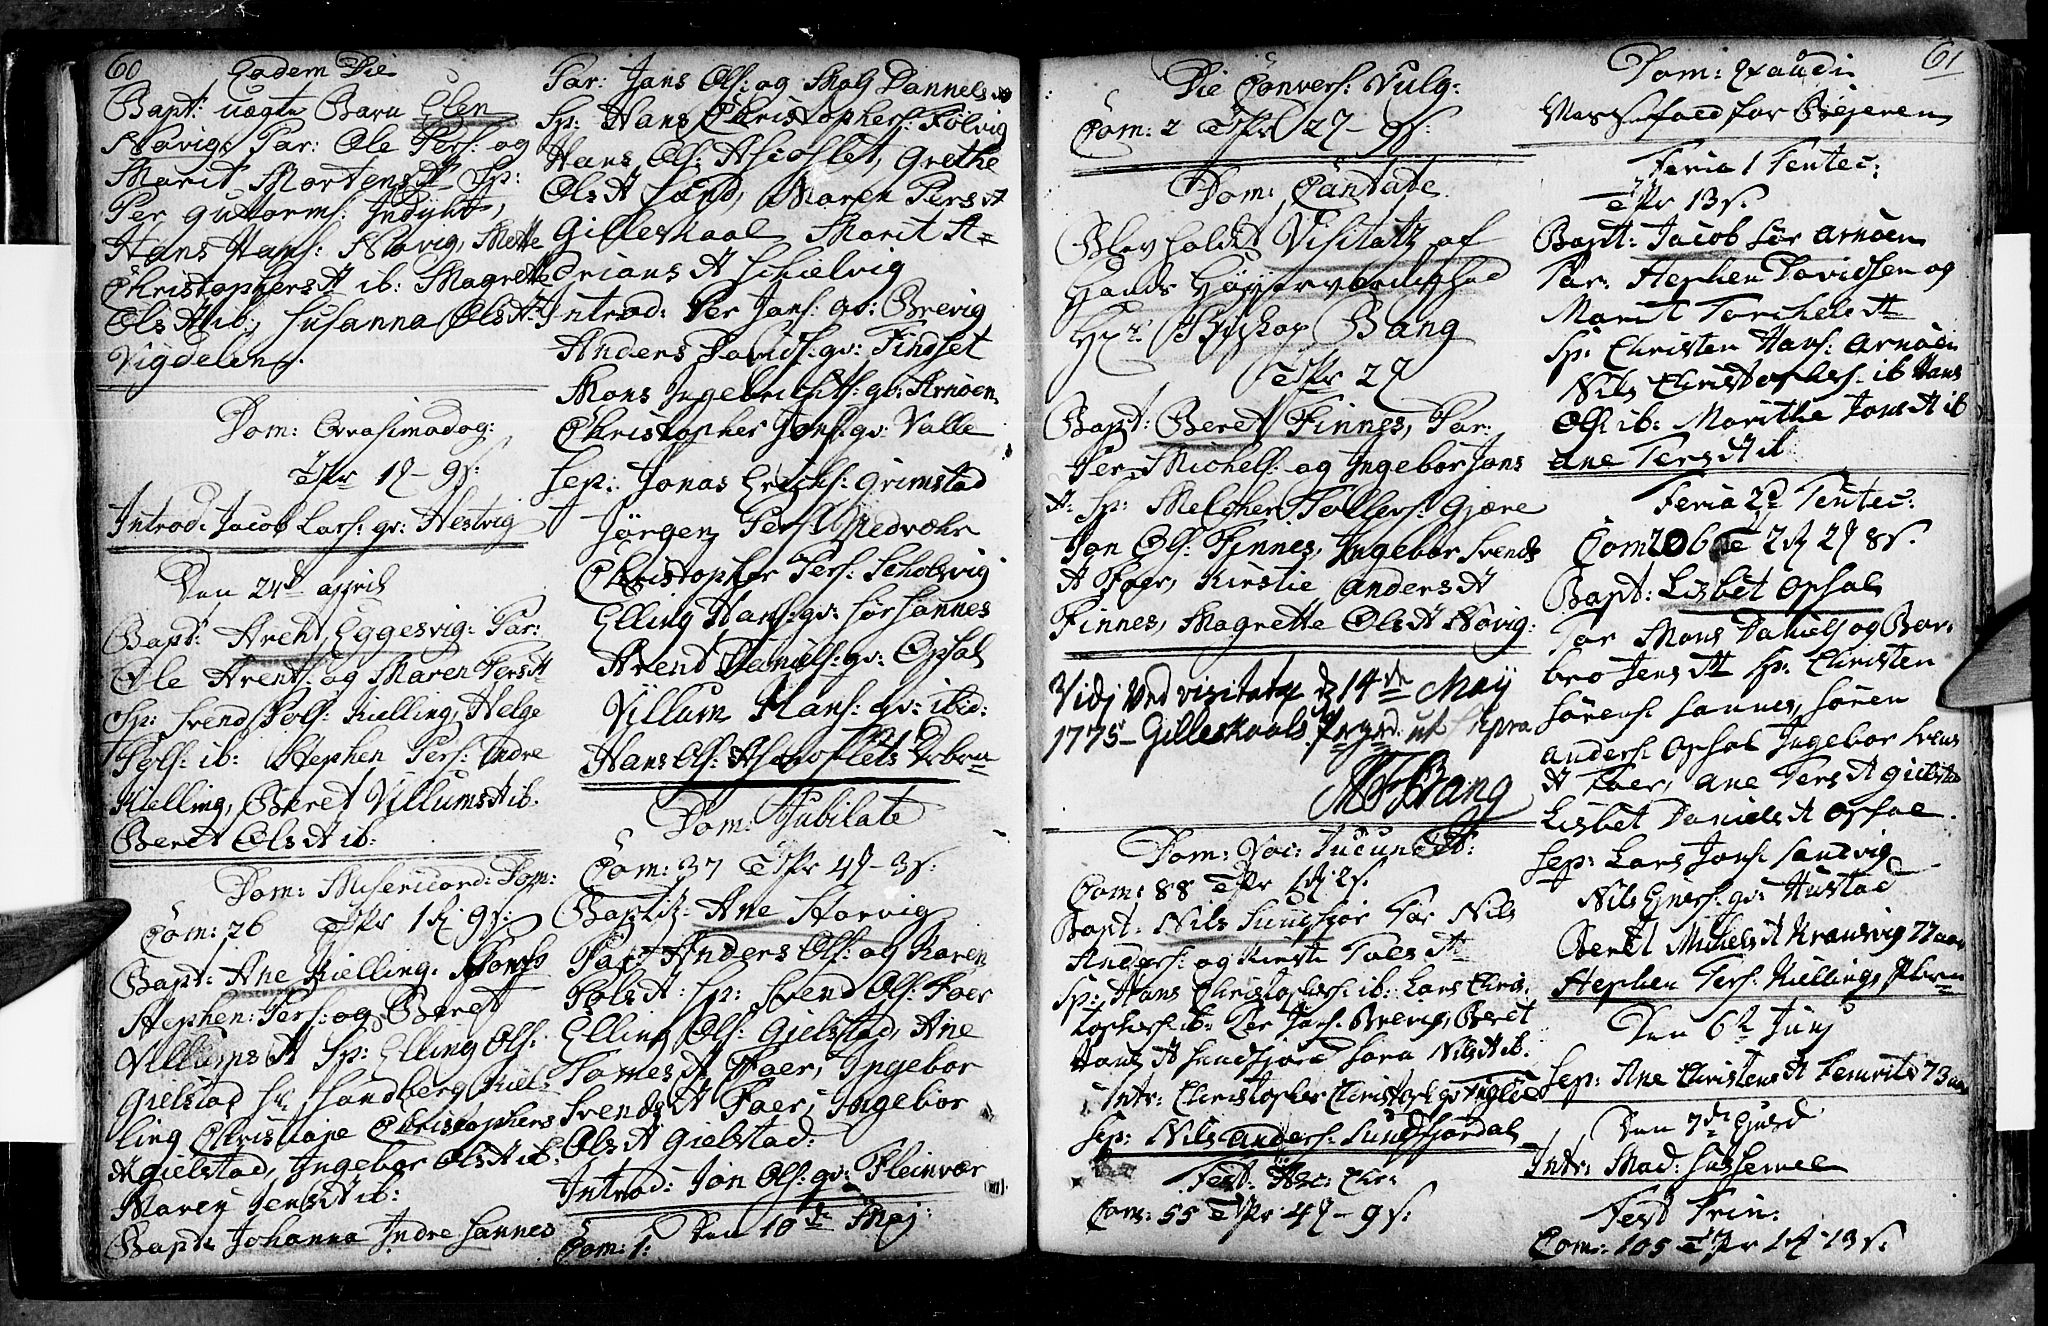 60
Eadem Die
Bapt: uægte Barn Elen
Novig. Par: Ole Pers: og
Marit Mortens D. Sp:
Per Guttorms: Indyhr,
Hans Hans: Novig, Mette
Christophers D ib: Magrette
Ols D ib: Susanna Ols D:
Vigdelen.
Dom: Qvasimodog:
TPr 1 - 9 s:
Introd: Jacob Lars: qv: Hestvig
Den 24d april
Bapt: Arent Eggesvig: Par:
Ole Arents: og Maren Pers D
Sp: Svend Pols: Kielling, Helge
Pols: ib: Stephen Pers: Indre
Kielling, Beret Villums D ib.
Beret Ols D ib:
Dom: Misericord: Dom:
Com: 26 TPr 1 9 s:
Bapt: Ane Kielling.
Stephen: Pers: og Beret
Villums D Sp: Elling Ols:
Gielstad Hr Sandberg Kiel-
ling Christiane Christophers
D Gielstad, Ingebor Ols D ib:
Maren Jens D ib:
Bapt: Johanna Indre Sannes
Par: Jans Ols: og Mag Dannels D
Sp: Hans Christophers: Følvig
Hans Ols: Aschoflet, Grethe
Ols D Sand, Maren Pers D
Gilleskaal Marit A-
drians D Schielvig
Introd: Per Jans: qv: Brevig
Anders Davids: qv: Findset
Mons Ingebrichts: qv: Arnøen
Christopher Jons: qv: Valle
Sep: Jonas Erichs: Grimstad
Jørgen Pers: Nedvæhr
Christopher Pers: Scholsvig
Elling Hans: qv: Sør Sannes
Arend Daniels: qv: Opsal
Villum Hans: qv: ibid:
Hans Ols: Aschoflets Dbrn
Dom: Jubilate
Com: 37 TPr 4 - 3 s:
Baptiz: Ane Storvig
Par: Anders Ols: og Karen
Pols D: Sp: Svend Ols: Faer
Elling Ols: Gielstad, Ane
Tomes D Faer, Ingebor
Svends D Faer, Ingebor
Ols D Gielstad:
Introd: Jon Ols: qv: Fleinvær
Den 10de Maj:
Com: 1:
Die Convers: Vulg:
Com: 2 TPr 2 - 9 s:
Dom: Cantate
Blev holdt Visitatz af
Hands Høyærværdighed
Hr: Biskop Bang
TPr 2
Bapt: Beret Finnes, Par:
Per Michels: og Ingebor Jans
D: Sp: Melcher Tollers: Gjære
Jon Ols: Finnes, Ingebor Svends
D Faer, Kirstie Anders D
Finnes, Magrette Ols D Novig:
Vidj ved visitatz d 14de Maij
1775 - Gilleskaals Prgrd. ut supra
MFBang
Dom: Voc: Jucundit:
Com: 88 TPr 1 2 s.
Bapt: Nils Sundfjor Par Nils
Anders: og Kirste Pols D
Sp: Hans Christophers: ib: Lars Chris-
tophers: ib: Per Jans: Brevig, Beret
Hans D Sundfjord Sara Nils D ib.
Intr: Christopher Christoph: qv: Figlöe
Sep: Nils Anders: Sundfjordal
Fest: Asc: Chr:
Com: 55 TPr 4 - 9 s:
61
Dom: Exaudi
Messefald for Vejeren
Feria 1 Pentec:
TPr 13 s.
Bapt: Jacob Sør Arnøen
Par: Stephen Davidsen og
Marit Torchels D
Sp: Christen Hans: Arnøen
Nils Christophers: ib Hans
Ols: ib: Marithe Jons D ib
Ane Pers D ib
Feria 2d Pentec:
Com 206 T 2 2 8 s.
Bapt: Lisbet Opsal
Par Mons Daniels og Bar-
bro Jens D Sp: Christen
Sørens: Sannes, Søren
Anders: Opsal Ingebor Svens
D Faer, Ane Pers D Gielstad
Lisbet Daniels D Opsal.
Sep: Lars Jons: Sandvig
Nils Einers: qv: Hustad
Beret Michels D Nransvig 77 aar
Stephen Pers: Kiellings
Den 6te Junj
Sep: Ane Christens D Femris 73 aar
Den 7de Ejusd
Intr: Mad: Schsemee
Fest Trin:
Com: 105 TPr 1 13 s.